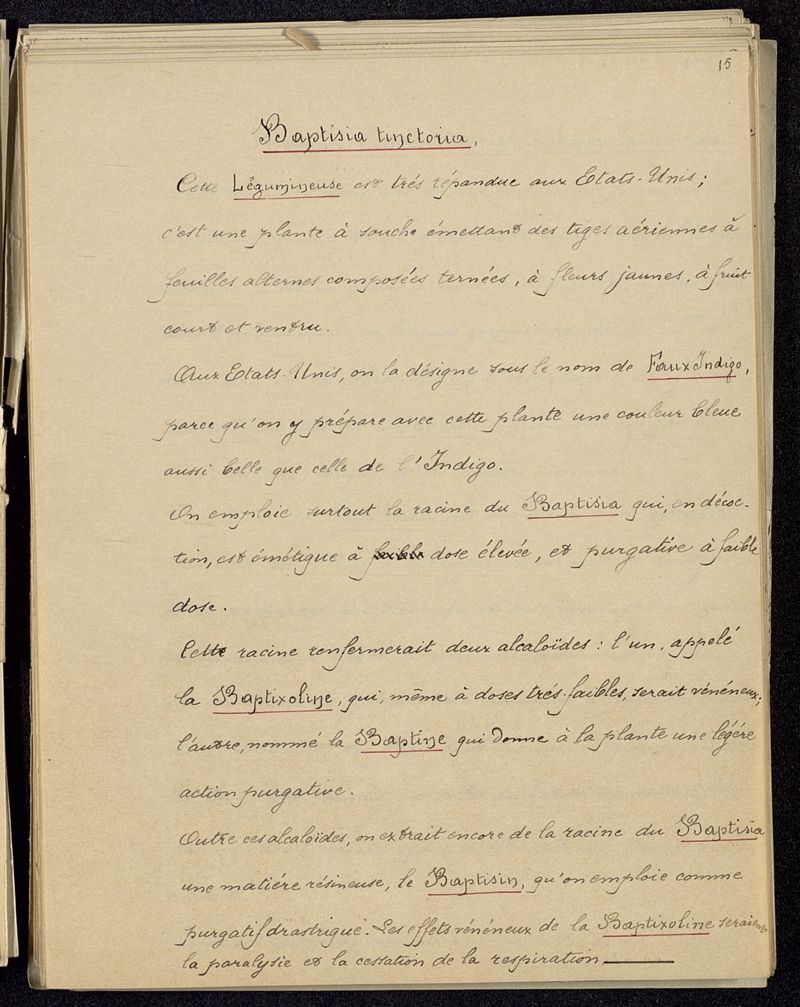 15
Baptisia tinctoria,
Cette Légumineuse est trés répandue aux Etats-Unis;
c'est une plante à souche émettant des tiges aériennes à
feuilles alternes composées ternées, à fleurs jaunes, à fruit
court et ventru.
Aux Etats-Unis, on la désigne sous le nom de Faux Indigo,
parce qu'on y prépare avec cette plante une couleur bleue
aussi belle que celle de l'Indigo.
On emploie surtout la racine du Baptisia qui, en décoc-
tion, est émétique à faible dose élevée, et purgative à faible
dose.
Cette racine renfermerait deux alcaloïdes: l'un, appelé
la Baptixoline, qui, même à doses trés-faibles, serait vénéneux;
l'autre, nommé la Baptine qui donne à la plante une légére
action purgative.
Outre ces alcaloïdes, on extrait encore de la racine du Baptisia
une matiére résineuse, le Baptisin, qu'on emploie comme
purgatif drastrique. Les effets vénéneux de la Baptixoline seraient
la paralysie et la cessation de la respiration